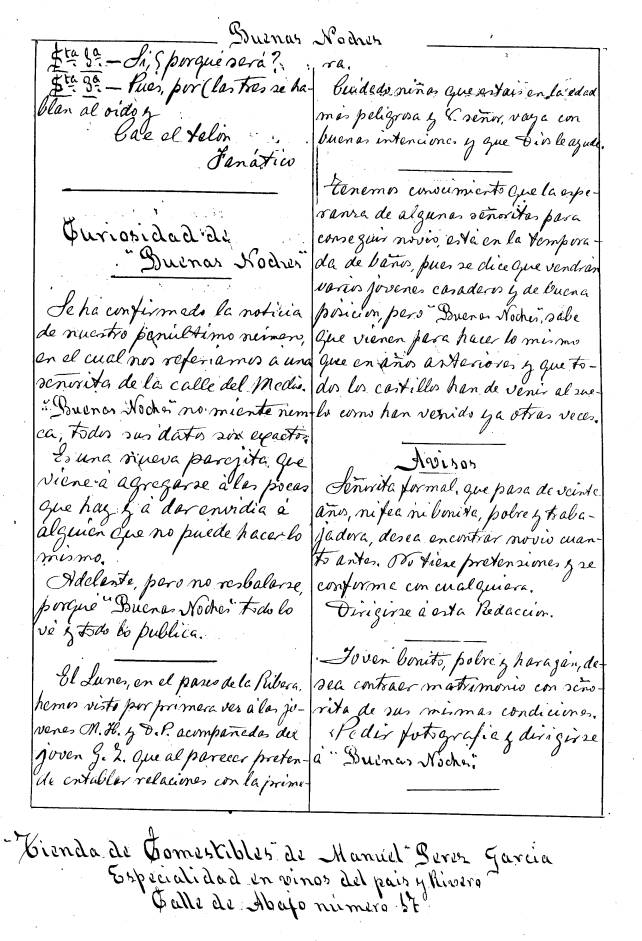 Buenas Noches
Sta. 2ª — Si, ¿porqué será?
Sta. 3ª — Pues, por (las tres se ha-
blan al oido y
Cae el telón
Fanático
Curiosidad de
"Buenas Noches"
Se ha confirmado la noticia
de nuestro penúltimo número,
en el cual nos referiamos a una
señorita de la calle del Medio.
"Buenas Noches" no miente nun-
ca, todos sus datos son exactos.
Es una nueva parejita que
viene á agregarse á las pocas
que hay y á dar envidia á
alguien que no puede hacer lo
mismo.
Adelante, pero no resbalarse,
porque "Buenas Noches" todo lo
vé y todo lo publica.
El Lunes, en el paseo de la Ribera,
hemos visto por primera vez á las jó-
venes M. H. y D. P. acompañadas del
joven G. Z. que al parecer preten-
de entablar relaciones con la prime-
ra.
Cuidado niñas que estais en la edad
más peligrosa y V. señor, vaya con
buenas intenciones y que Dios le ayude.
Tenemos conocimiento que la espe-
ranza de algunas señoritas para
conseguir novio, está en la tempora-
da de baños, pues se dice que vendran
varios jovenes casaderos y de buena
posición, pero "Buenas Noches", sabe
que vienen para hacer lo mismo
que en años anteriores y que to-
dos los castillos han de venir al sue-
lo como han venido ya otras veces.
Avisos
Señorita formal, que pasa de veinte
años, ni fea ni bonita, pobre y traba-
jadora, desea encontrar novio cuan-
to antes. No tiene pretensiones y se
conforma con cualquiera.
Dirigirse á esta Redacción.
Joven bonito, pobre y haragán, de-
sea contraer matrimonio con seño-
rita de sus mismas condiciones.
Pedir fotografía y dirigirse
á "Buenas Noches".
"Tienda de Comestibles" de Manuel Perez Garcia
Especialidad en vinos del pais y Rivero
Calle de Abajo número 57